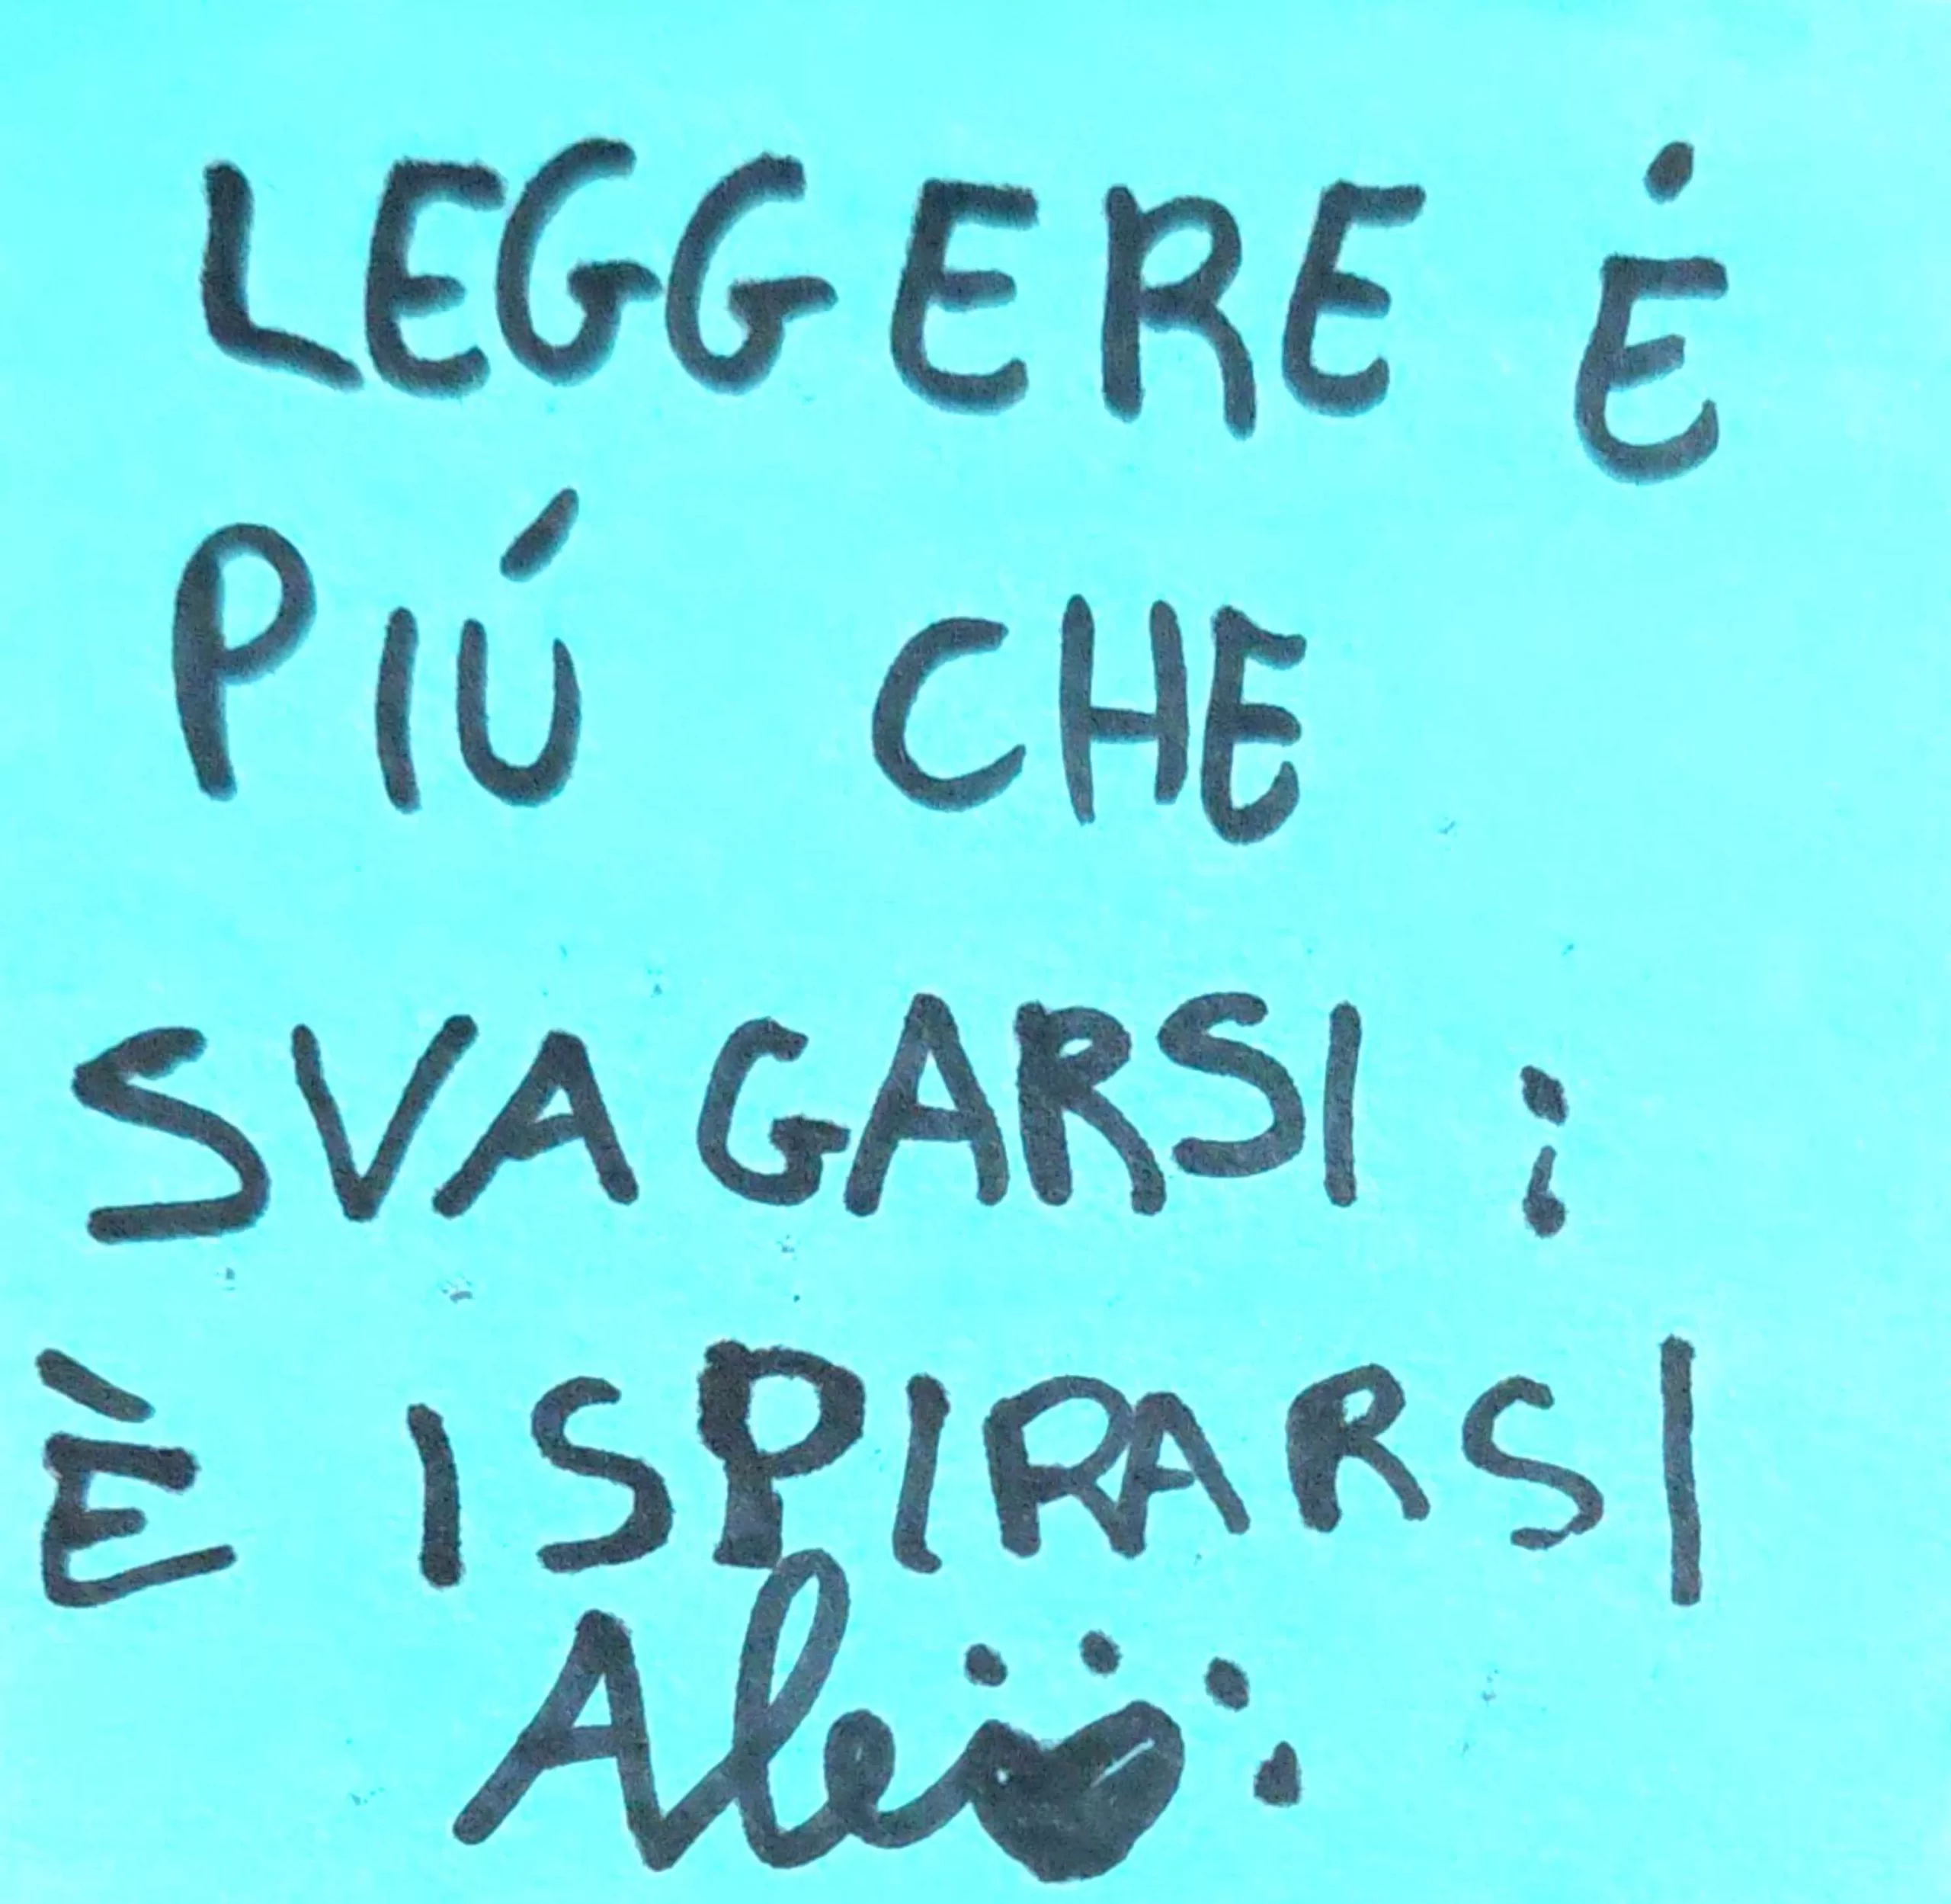 LEGGERE É
PIÚ CHE
SVAGARSI ;
È ISPIRARSI
Ale